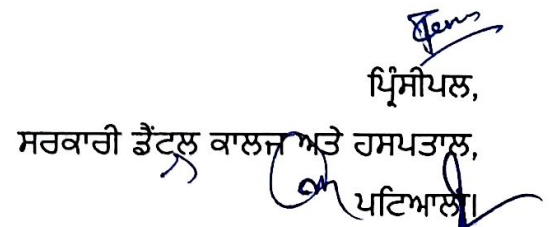 ਪ੍ਰਿੰਸੀਪਲ,
ਸਰਕਾਰੀ ਡੈਂਟਲ ਕਾਲਜ ਅਤੇ ਹਸਪਤਾਲ,
ਪਟਿਆਲਾ।